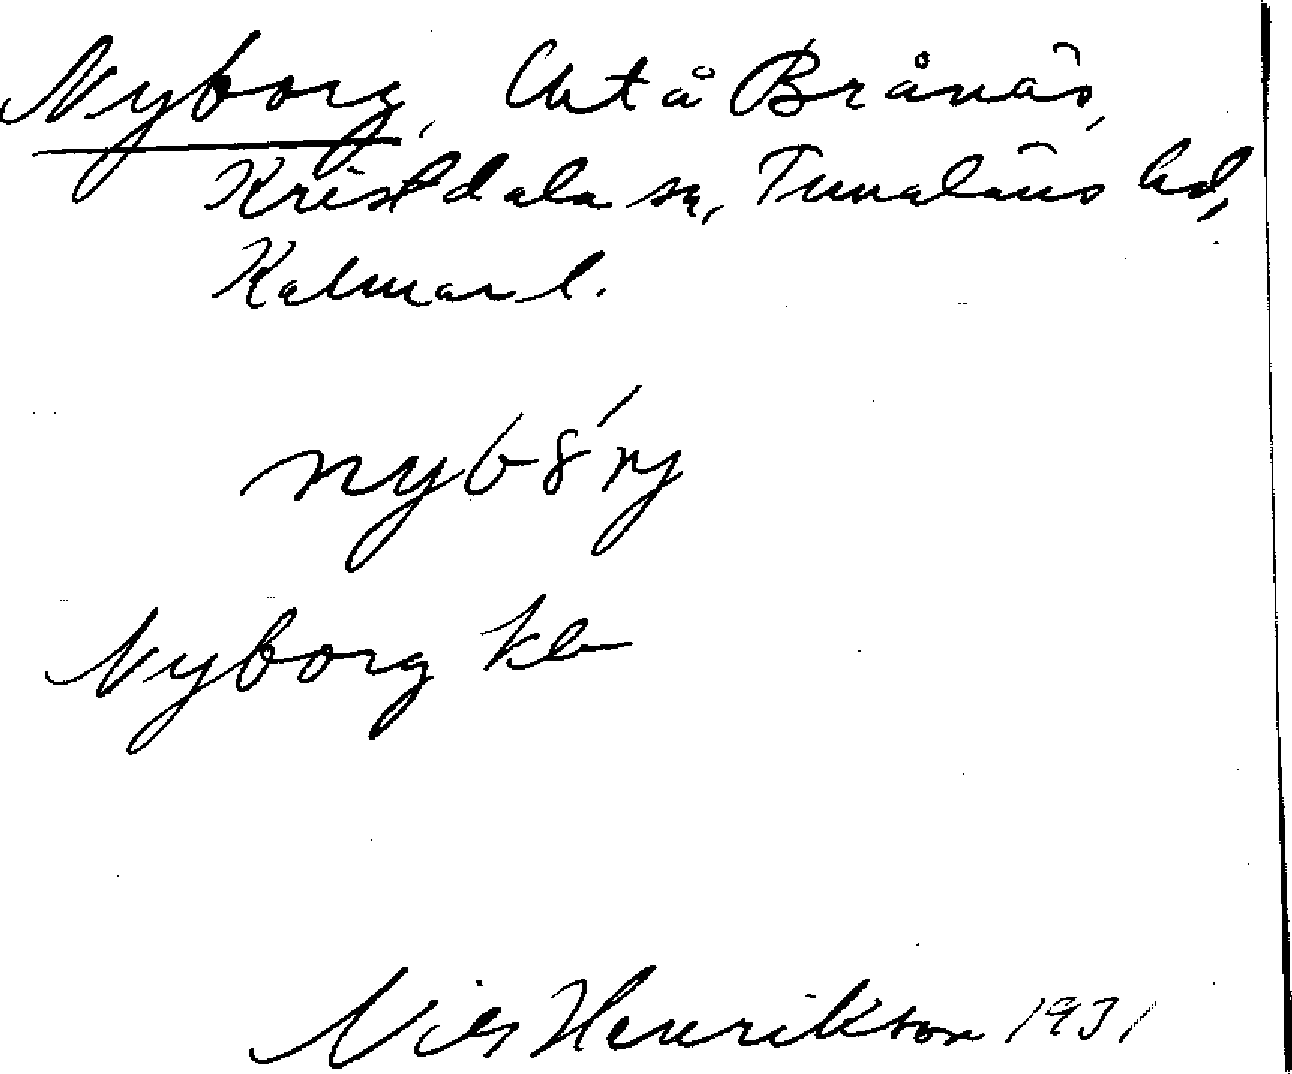 Nyborg, Unt å Brånäs,
Kristdala sn, Tunaläns hd,
Kalmar l.
nyb8´rj
Nyborg kb
Nils Henrikson 1931